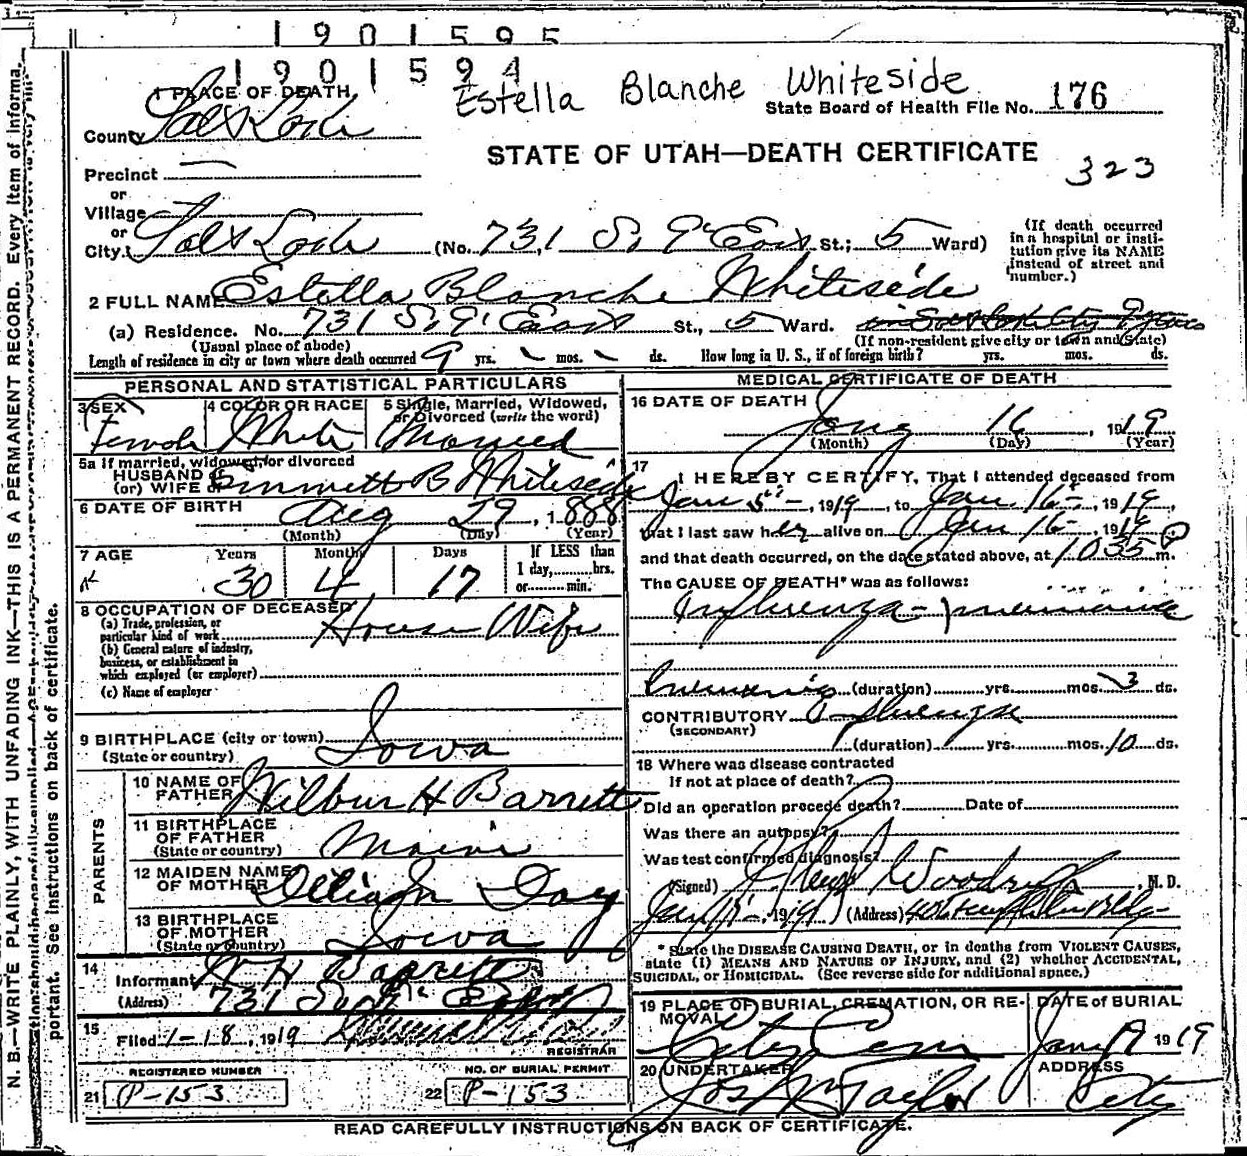 1901595
1901594
Estella Blanche Whiteside
1 PLACE OF DEATH
State Board of Health File No. 176
County Salt Lake
STATE OF UTAH—DEATH CERTIFICATE
323
Precinct —
or
Village
or
City Salt Lake (No. 731 So 9th East St.; 5 Ward)
(If death occurred in a hospital or institution give its NAME instead of street and number.)
2 FULL NAME Estella Blanche Whiteside
(a) Residence. No. 731 S. 9th East St., 5 Ward. in Salt Lake City 9 years
(Usual place of abode) (If non-resident give city or town and State)
Length of residence in city or town where death occurred 9 yrs. - mos. - ds. How long in U. S., if of foreign birth? yrs. mos. ds.
PERSONAL AND STATISTICAL PARTICULARS
3 SEX 4 COLOR OR RACE 5 Single, Married, Widowed, or Divorced (write the word)
Female White Married
5a If married, widowed, or divorced
HUSBAND of
(or) WIFE of Emmett B Whiteside
6 DATE OF BIRTH Aug 29, 1888
(Month) (Day) (Year)
7 AGE Years Months Days If LESS than
1 day,......hrs.
or......min.
30 4 17
8 OCCUPATION OF DECEASED
(a) Trade, profession, or particular kind of work House Wife
(b) General nature of industry, business, or establishment in which employed (or employer)
(c) Name of employer
9 BIRTHPLACE (city or town)
(State or country) Iowa
PARENTS
10 NAME OF FATHER Wilbur H Barrett
11 BIRTHPLACE OF FATHER
(State or country) Maine
12 MAIDEN NAME OF MOTHER Day
13 BIRTHPLACE OF MOTHER
(State or country) Iowa
14 Informant W H Barrett
(Address) 731 So 9th East
15 Filed 1-18, 1919
REGISTRAR
REGISTERED NUMBER NO. OF BURIAL PERMIT
21 P-153 22 P-153
MEDICAL CERTIFICATE OF DEATH
16 DATE OF DEATH
Jany 16, 1919
(Month) (Day) (Year)
17 I HEREBY CERTIFY, That I attended deceased from
Jan 5, 1919, to Jan 16, 1919,
that I last saw her alive on Jan 16, 1919
and that death occurred, on the date stated above, at 1035 P m.
The CAUSE OF DEATH* was as follows:
Influenza - pneumonia
Pneumonia (duration) yrs. mos. 3 ds.
CONTRIBUTORY Influenza
(SECONDARY)
(duration) yrs. mos. 10 ds.
18 Where was disease contracted
if not at place of death?
Did an operation precede death? Date of
Was there an autopsy?
Was test confirmed diagnosis?
(Signed) Woodruff, M. D.
, 1919 (Address)
* State the DISEASE CAUSING DEATH, or in deaths from VIOLENT CAUSES,
state (1) MEANS AND NATURE OF INJURY, and (2) whether ACCIDENTAL,
SUICIDAL, or HOMICIDAL. (See reverse side for additional space.)
19 PLACE OF BURIAL, CREMATION, OR REMOVAL DATE of BURIAL
City Cem Jany 19 1919
20 UNDERTAKER ADDRESS
Jos Wm Taylor City
READ CAREFULLY INSTRUCTIONS ON BACK OF CERTIFICATE.
N. B.—WRITE PLAINLY, WITH UNFADING INK—THIS IS A PERMANENT RECORD. Every item of informa-
tion should be carefully supplied.
portant. See instructions on back of certificate.